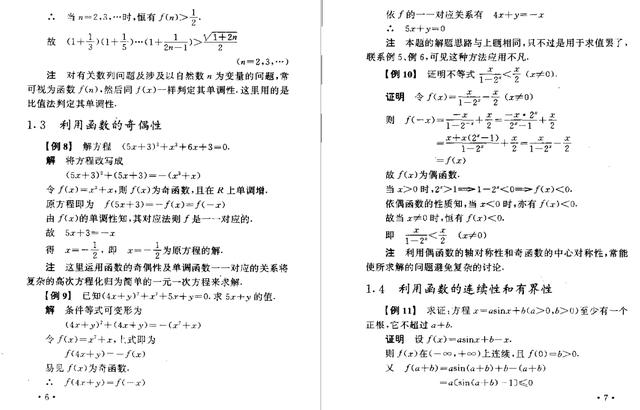 ∴ 当 n=2,3,…时,恒有 f(n)>1/2.
故 (1+1/3)(1+1/5)…(1+1/(2n-1))>√(1+2n)/2
(n=2,3,…)
注 对有关数列问题及涉及以自然数 n 为变量的问题,常
可视为函数 f(n),然后同 f(x)一样判定其单调性.这里用的是
比值法判定其单调性.
1.3 利用函数的奇偶性
【例8】 解方程 (5x+3)³+x³+6x+3=0.
解 将方程改写成
(5x+3)³+(5x+3)=-(x³+x)
令 f(x)=x³+x,则 f(x)为奇函数,且在 R 上单调增.
原方程即为 f(5x+3)=-f(x)=f(-x)
由 f(x)的单调性知,其对应法则 f 是一一对应的.
故 5x+3=-x
得 x=-1/2,即 x=-1/2为原方程的解.
注 这里运用函数的奇偶性及单调函数一一对应的关系将
复杂的高次方程化归为简单的一元一次方程来求解.
【例9】 已知(4x+y)³+x³+5x+y=0.求 5x+y 的值.
解 条件等式可变形为
(4x+y)³+(4x+y)=-(x³+x)
令 f(x)=x³+x,上式即为
f(4x+y)=-f(x)
易见 f(x)为奇函数.
∴ f(4x+y)=f(-x)
·6·
依 f 的一一对应关系有 4x+y=-x
∴ 5x+y=0
注 本题的解题思路与上题相同,只不过是用于求值罢了,
联系例5、例6,可见这种方法应用不凡.
【例10】 证明不等式 x/(1-2ˣ)<x/2 (x≠0).
证明 令 f(x)=x/(1-2ˣ)-x/2 (x≠0)
则 f(-x)=-x/(1-2⁻ˣ)+x/2=-x·2ˣ/(2ˣ-1)+x/2
=x+x(2ˣ-1)/(1-2ˣ)+x/2=x/(1-2ˣ)-x/2
=f(x)
故 f(x)为偶函数.
当 x>0 时,2ˣ>1⟹1-2ˣ<0⟹f(x)<0.
依偶函数的性质知,当 x<0 时,亦有 f(x)<0.
故当 x≠0 时,恒有 f(x)<0.
即 x/(1-2ˣ)<x/2 (x≠0)
注 利用偶函数的轴对称性和奇函数的中心对称性,常能
使所求解的问题避免复杂的讨论.
1.4 利用函数的连续性和有界性
【例11】 求证:方程 x=asinx+b(a>0,b>0)至少有一个
正根,它不超过 a+b.
证明 设 f(x)=asinx+b-x.
则 f(x)在(-∞,+∞)上连续,且 f(0)=b>0.
又 f(a+b)=asin(a+b)+b-(a+b)
=a[sin(a+b)-1]≤0
·7·